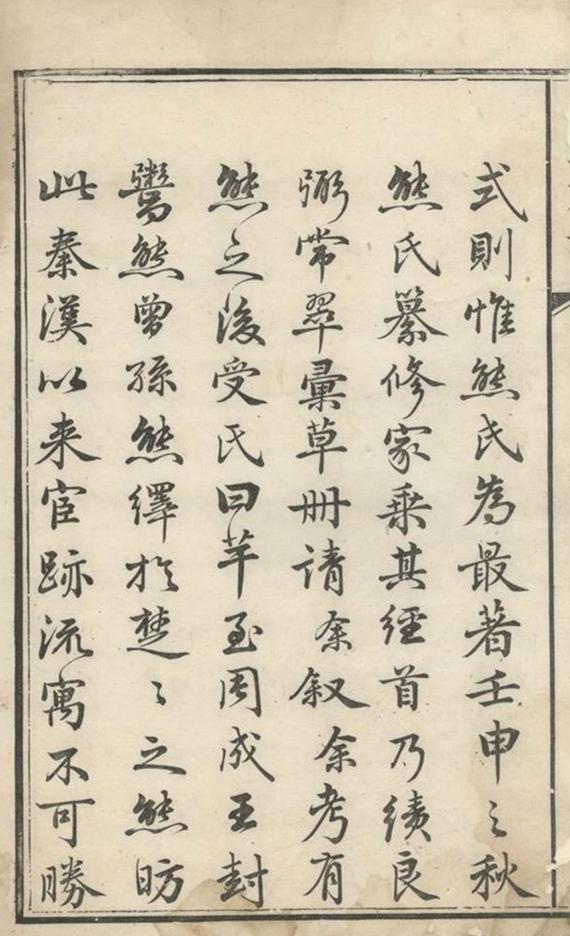 式則惟熊氏為最著壬申〻秋
熊氏纂修家乗其經首乃績良
弼常翠彙草冊請余叙余考有
熊之後受氏曰芊至周成王封
鬻熊曾孫熊繹於楚〻之熊昉
此秦漢以来宦跡流寓不可勝